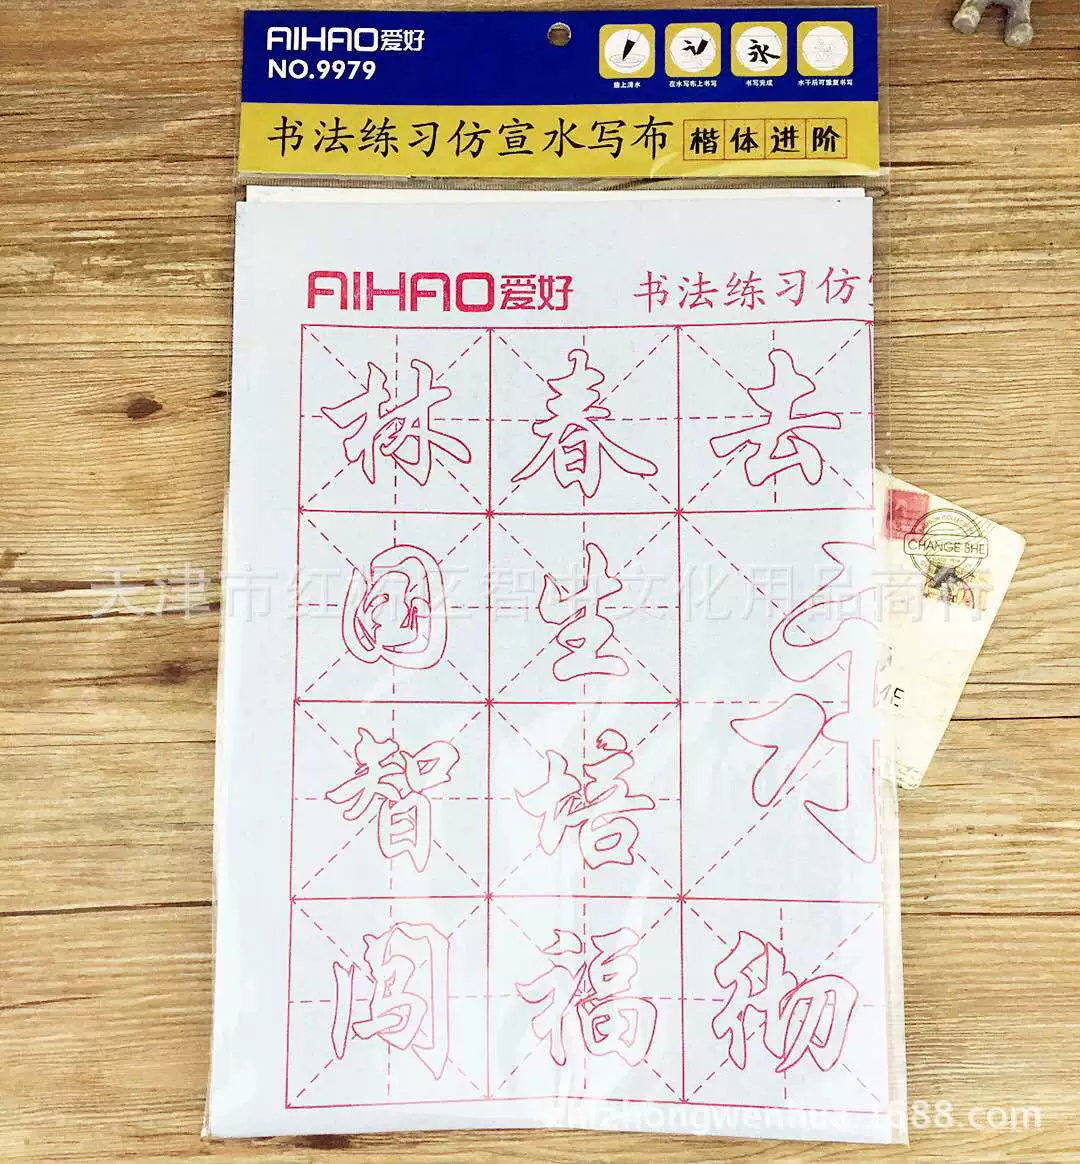 AIHAO爱好
NO.9979
蘸上清水
在水写布上书写
书写完成
水干后可重复书写
永
书法练习仿宣水写布 楷体进阶
AIHAO爱好 书法练习仿
林 春 去
国 生
智 培
闯 福 物
CHANGE SHE
天津市红桥区智中文化用品商行
zhizhongwenhua.1688.com